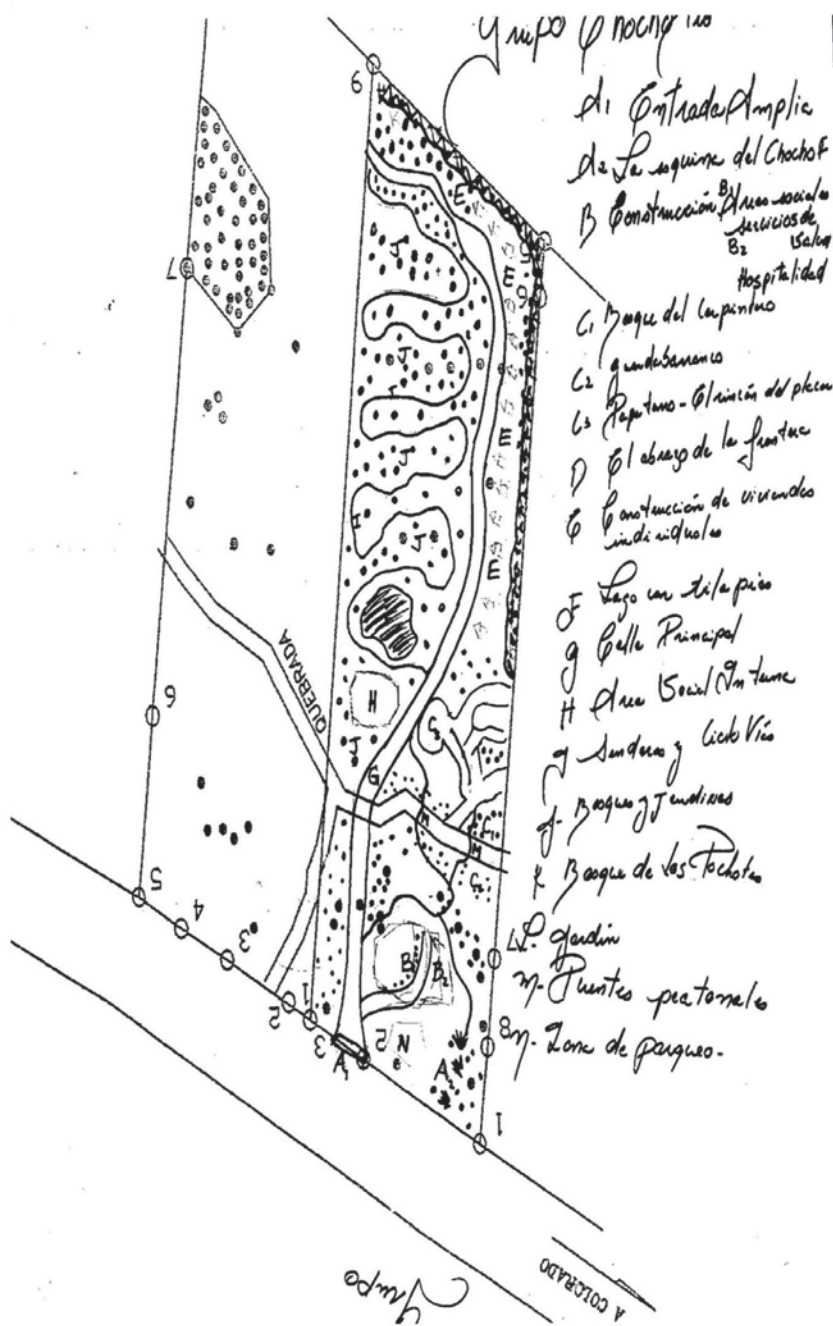 Grupo
A1 Entrada Amplia
A2 La esquina del Chocho F
B Construcción B1 Areas sociales
servicios de
B2 Salud
Hospitalidad
C1 Bosque del Carpintero
C2 guardabarranco
C3 El rincón del placer
D El abrazo de la frontera
E Construcción de viviendas
individuales
F Lago con tilapias
G Calle Principal
H Area Social Interna
I Senderos y Ciclo Vías
J- Bosques y Jardines
K Bosque de los Pochotes
L- Jardin
M- Puentes peatonales
N- Zona de parqueo.
9
K
E
J
E
J
E
J
I
J
E
H
C3
J
G
M
C1
M
C2
B
B2
N
A1
A2
7
6
5
4
3
2
1
3
2
7
8
1
6
QUEBRADA
A COLORADO
Grupo